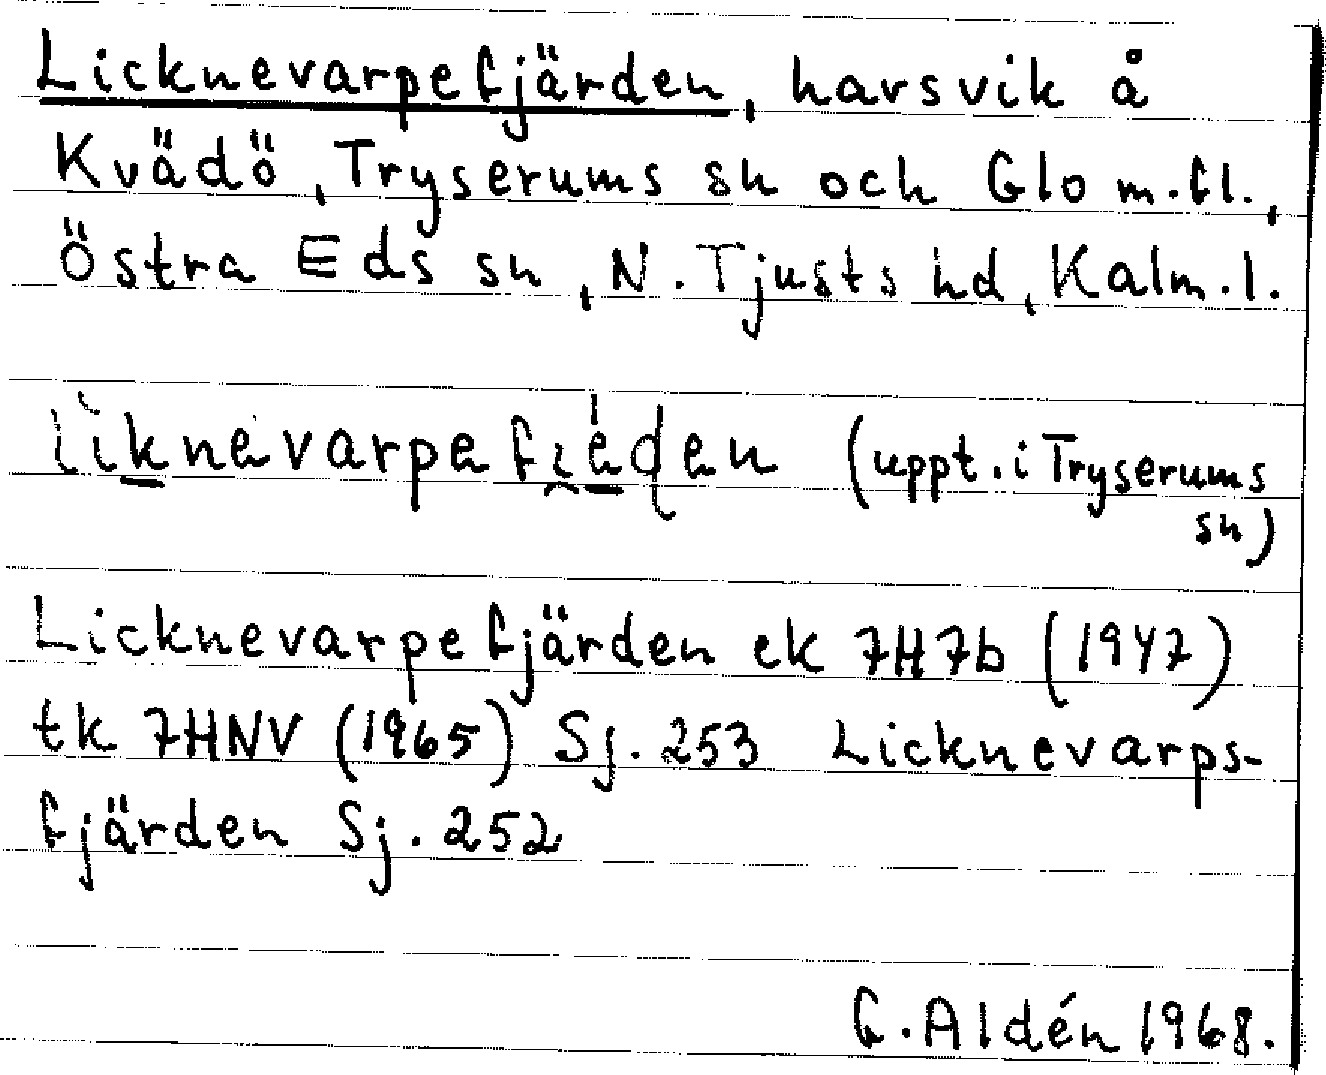 Licknevarpefjärden, havsvik å
Kvädö, Tryserums sn och Glo m.fl.,
Östra Eds sn, N. Tjusts hd, Kalm.l.
(uppt. i Tryserums
sn)
Licknevarpefjärden ek 7H7b (1947)
tk 7HNV (1965) Sj. 253 Licknevarps-
fjärden Sj. 252
G. Aldén 1968.